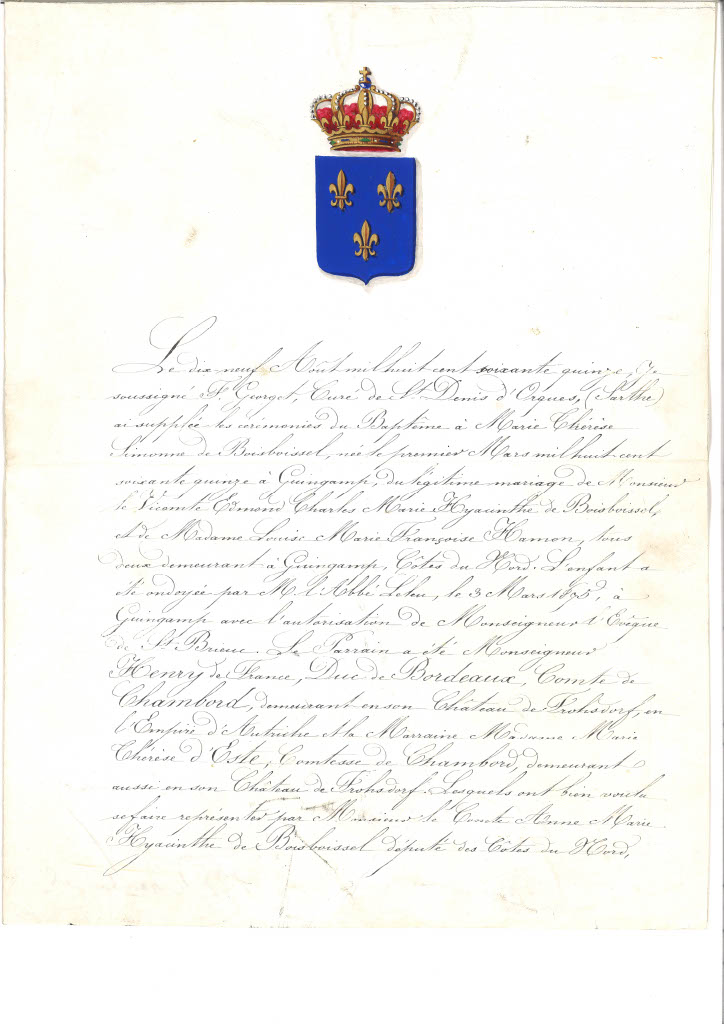 Le dix-neuf Août mil huit cent soixante quinze, Je
soussigné F. Georget, Curé de St Denis d'Orques, (Sarthe)
ai suppléé les cérémonies du Baptême à Marie Thérèse
Simonne de Boisboissel, née le premier Mars mil huit cent
soixante quinze à Guingamp, du légitime mariage de Monsieur
le Vicomte Edmond Charles Marie Hyacinthe de Boisboissel,
et de Madame Louise Marie Françoise Hamon, tous
deux demeurant à Guingamp, Côtes du Nord. L'enfant a
été ondoyée par M. l'Abbé Leleu, le 3 Mars 1875, à
Guingamp avec l'autorisation de Monseigneur l'Evêque
de St Brieuc. Le Parrain a été Monseigneur
Henry de France, Duc de Bordeaux, Comte de
Chambord, demeurant en son Château de Frohsdorf, en
l'Empire d'Autriche et la Marraine Madame Marie
Thérèse d'Este, Comtesse de Chambord, demeurant
aussi en son Château de Frohsdorf. Lesquels ont bien voulu
se faire représenter par Monsieur le Comte Anne Marie
Hyacinthe de Boisboissel député des Côtes du Nord,